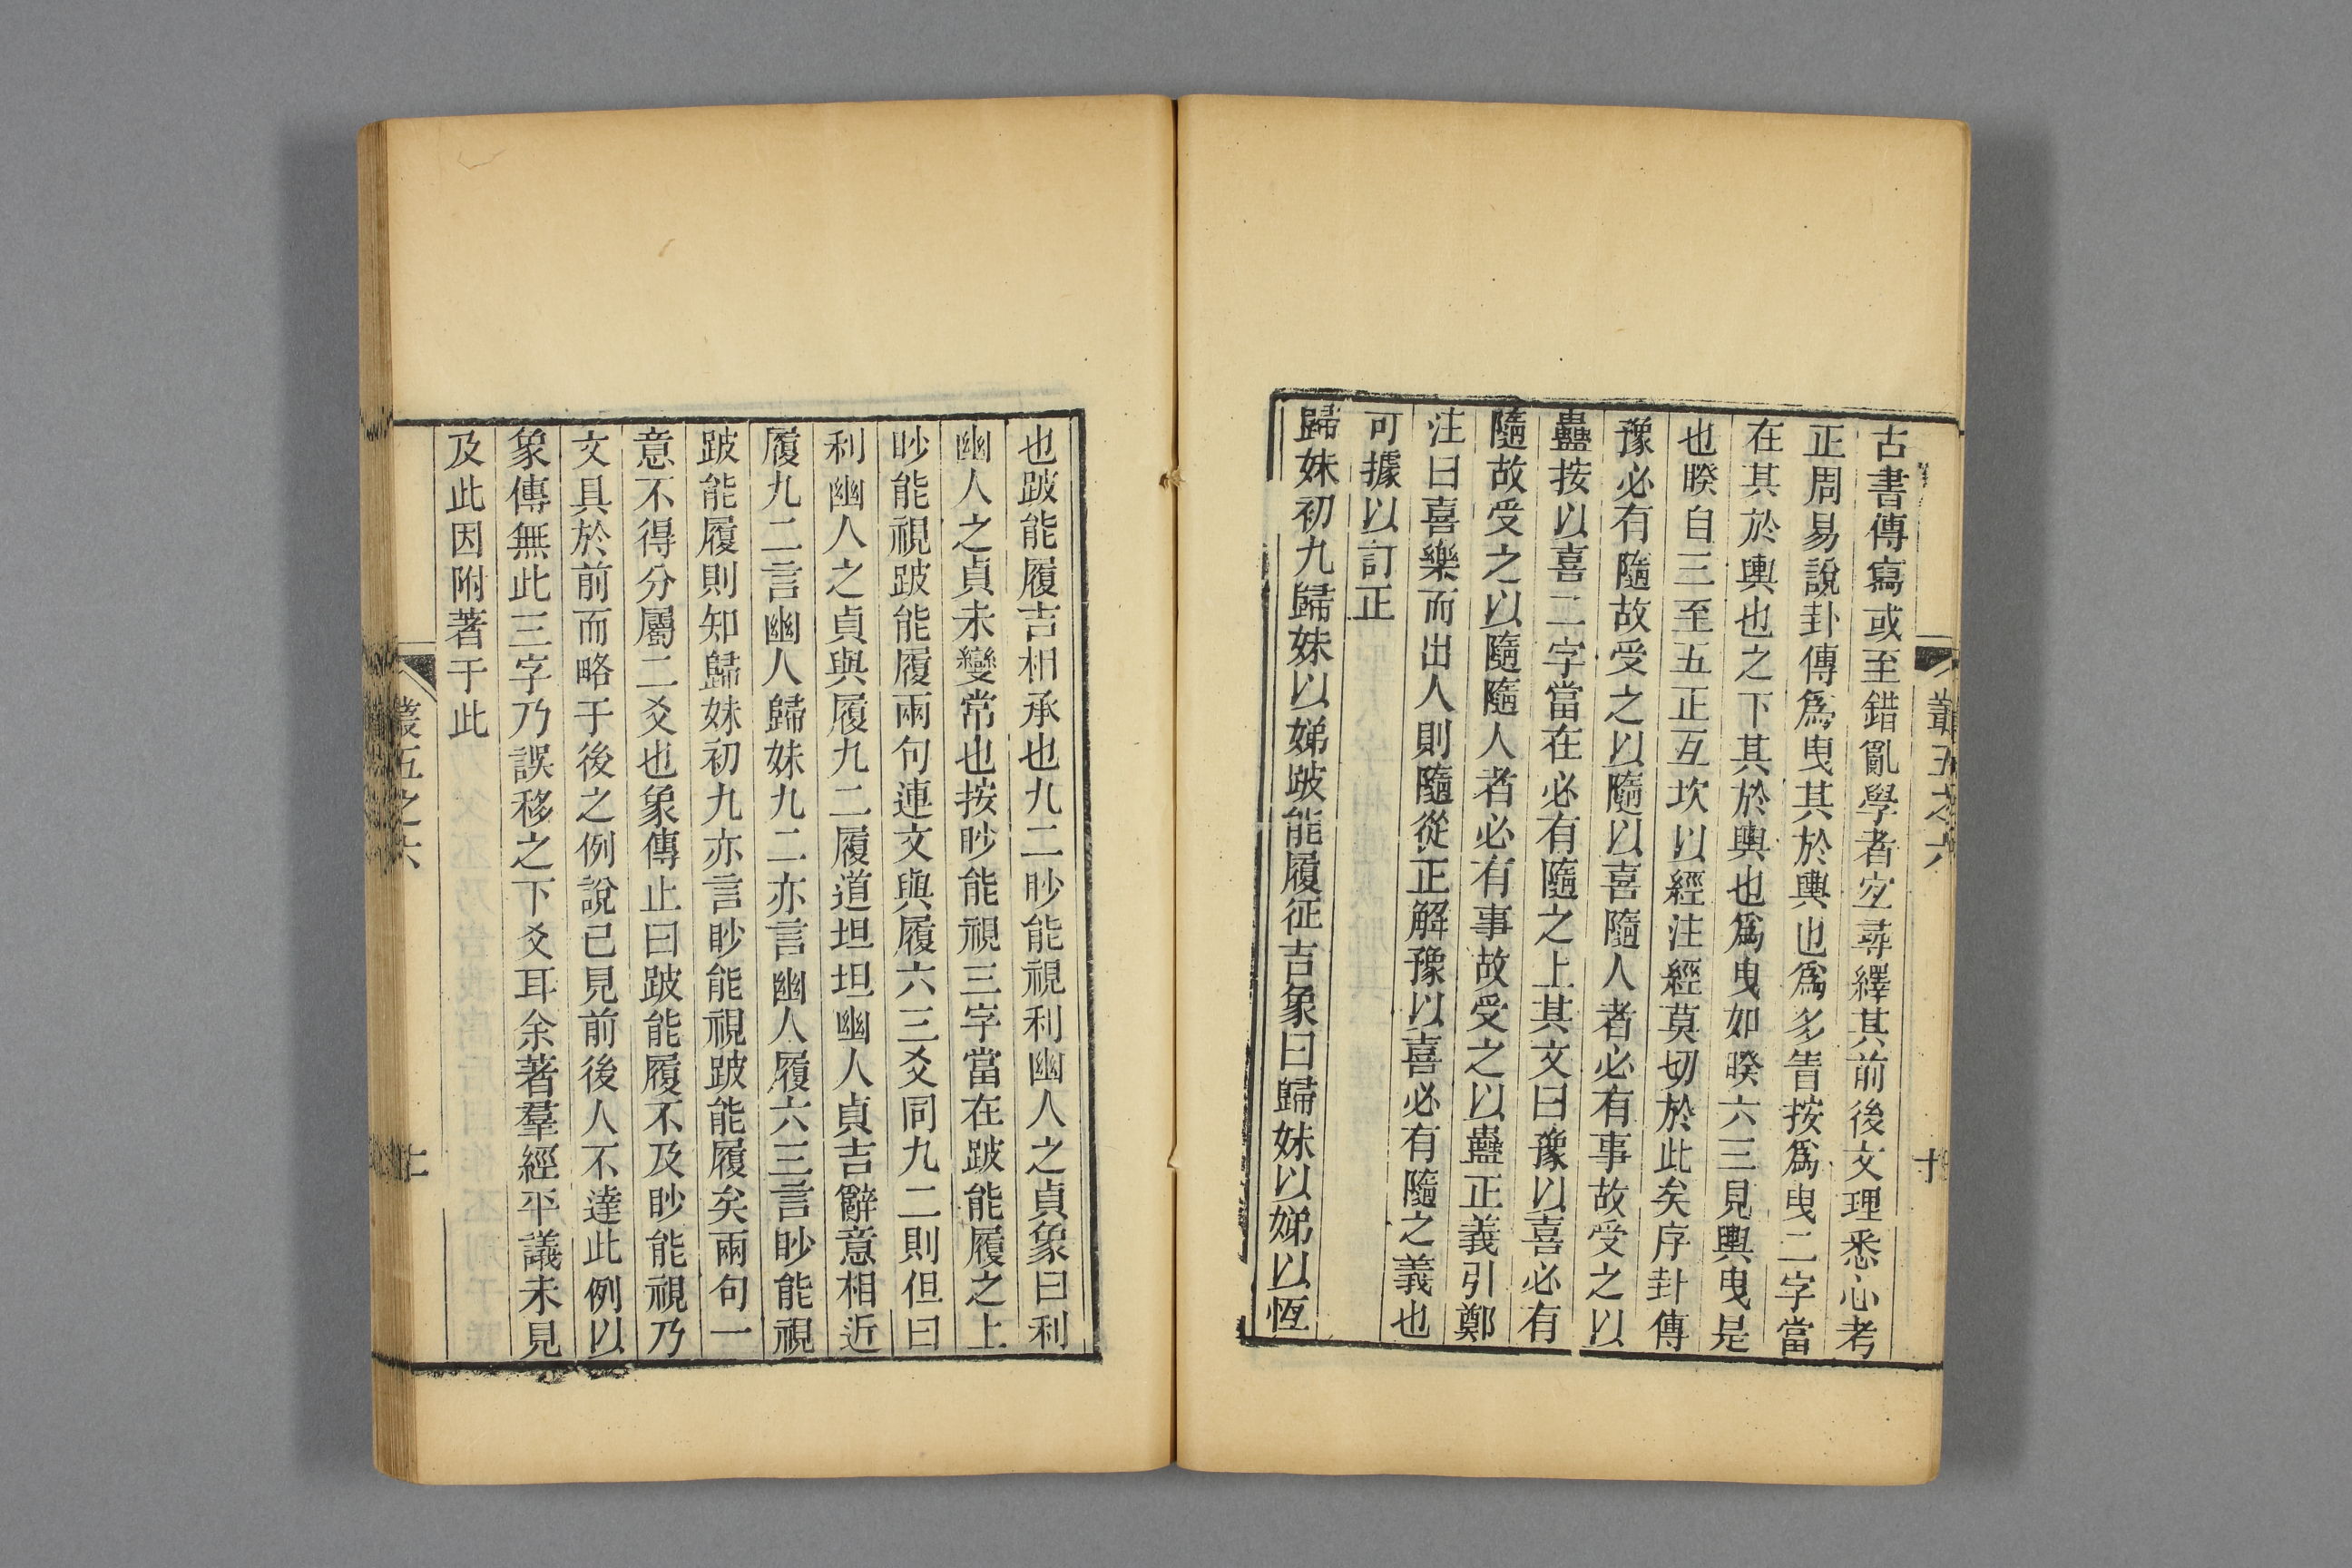 古書傳寫或至錯亂學者宐尋繹其前後文理悉心考
正周易說卦傳爲曳其於輿也爲多眚按爲曳二字當
在其於輿也之下其於輿也爲曳如睽六三見輿曳是
也睽自三至五正互坎以經注經莫切於此矣序卦傳
豫必有隨故受之以隨以喜隨人者必有事故受之以
蠱按以喜二字當在必有隨之上其文曰豫以喜必有
隨故受之以隨隨人者必有事故受之以蠱正義引鄭
注曰喜樂而出人則隨從正解豫以喜必有隨之義也
可據以訂正
歸妹初九歸妹以娣跛能履征吉象曰歸妹以娣以恆
叢五之六
十
也跛能履吉相承也九二眇能視利幽人之貞象曰利
幽人之貞未變常也按眇能視三字當在跛能履之上
眇能視跛能履兩句連文與履六三爻同九二則但曰
利幽人之貞與履九二履道坦坦幽人貞吉辭意相近
履九二言幽人歸妹九二亦言幽人履六三言眇能視
跛能履則知歸妹初九亦言眇能視跛能履矣兩句一
意不得分屬二爻也象傳止曰跛能履不及眇能視乃
文具於前而略于後之例說已見前後人不達此例以
象傳無此三字乃誤移之下爻耳余著羣經平議未見
及此因附著于此
叢五之六